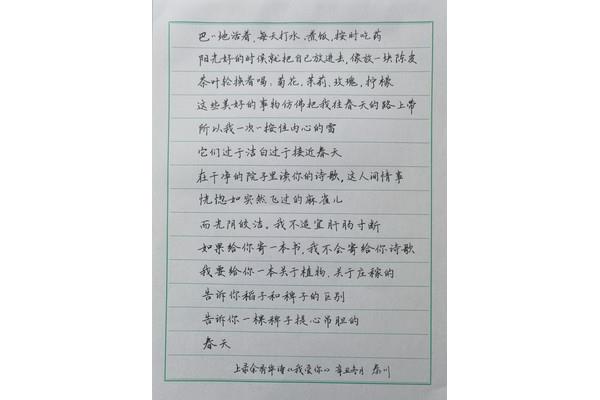 巴巴地活着，每天打水、煮饭，按时吃药
阳光好的时候就把自己放进去，像放一块陈皮
茶叶轮换着喝：菊花，茉莉，玫瑰，柠檬
这些美好的事物仿佛把我往春天的路上带
所以我一次一次按住内心的雪
它们过于洁白过于接近春天
在干净的院子里读你的诗歌，这人间情事
恍惚如突然飞过的麻雀儿
而光阴皎洁。我不适宜肝肠寸断
如果给你寄一本书，我不会寄给你诗歌
我要给你一本关于植物、关于庄稼的
告诉你稻子和稗子的区别
告诉你一棵稗子提心吊胆的
春天
上录余秀华诗《我爱你》 辛丑冬月